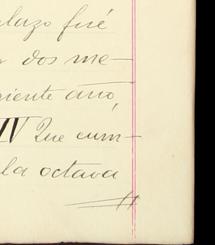 plazo fijé
dos me-
riente año,
IV Que cum-
la octava